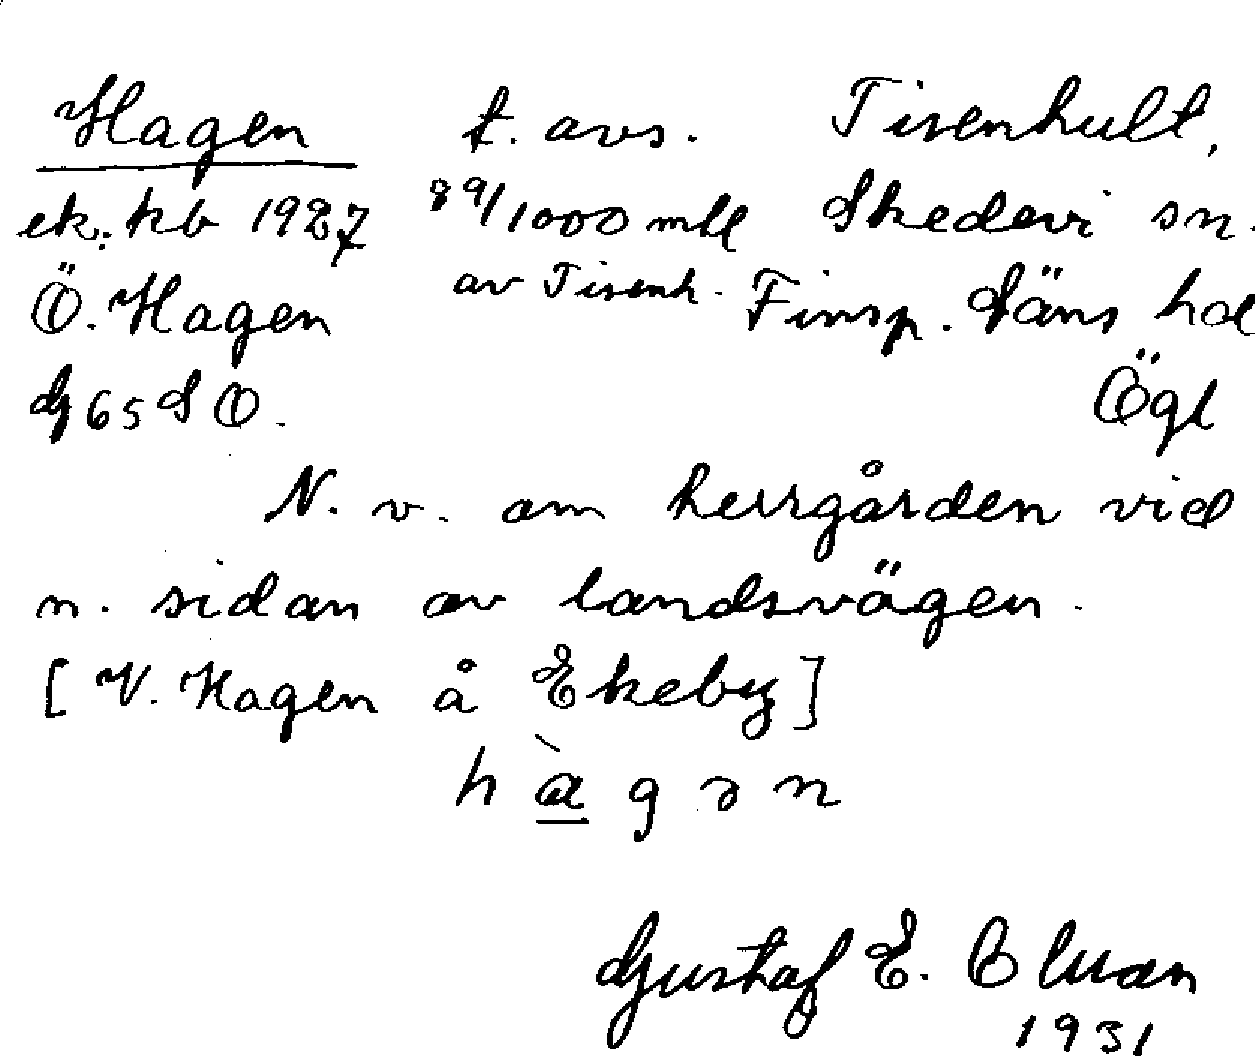 Hagen t. avs. Tisenhult,
ek. kb 1927 89/1000 mtl Skedevi sn.
Ö. Hagen av Tisenh. Finsp. läns hd
G 65 SO. Ögl
N. v. om herrgården vid
n. sidan av landsvägen.
[V. Hagen å Ekeby]
hàgən
Gustaf E.
1931